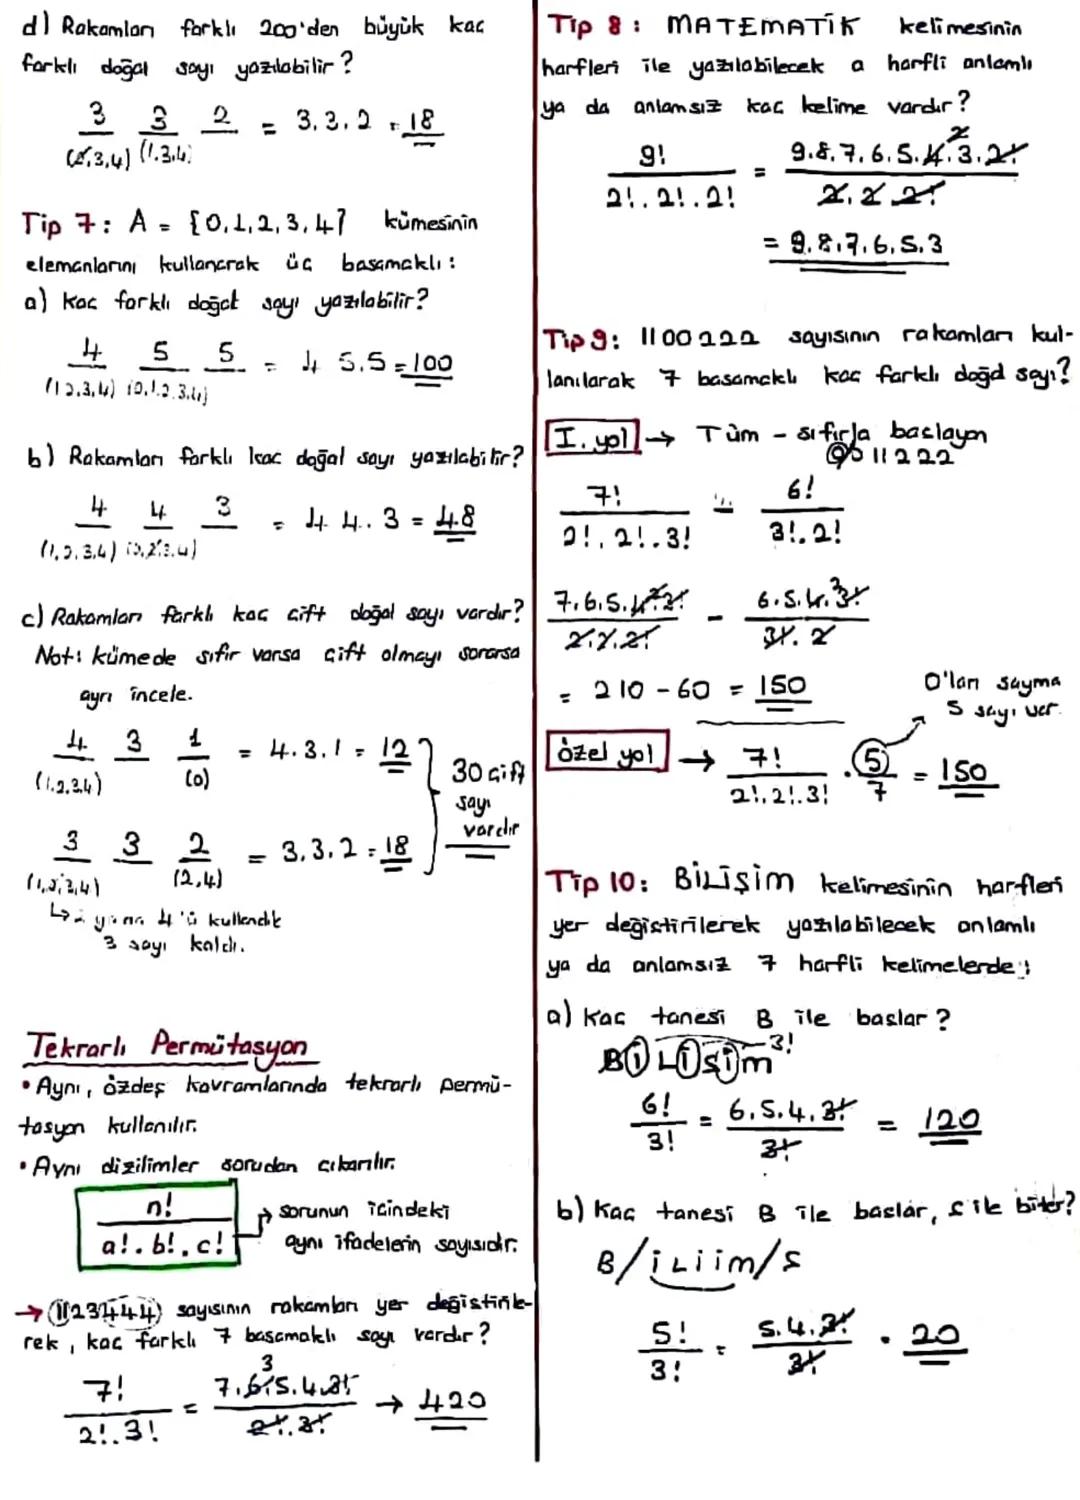 d) Rakamları farklı 200'den büyük kaç
farklı doğal sayı yazılabilir?
3 3 2 = 3.3.2 = 18
(2,3,4) (1,3,4)
Tip 7: A = {0,1,2,3,4} kümesinin
elemanlarını kullanarak üç basamaklı:
a) kaç farklı doğal sayı yazılabilir?
4 5 5 = 4 5.5 = 100
(1 2,3,4) (0,1,2,3,4)
b) Rakamları farklı kaç doğal sayı yazılabilir?
4 4 3 = 4 4. 3 = 48
(1,2,3,4) (0,2,3,4)
c) Rakamları farklı kaç çift doğal sayı vardır?
Not: kümede sıfır varsa çift olmayı sorarsa
ayrı incele.
4 3 1 = 4.3.1 = 12
(1,2,3,4) (0)
3 3 2 = 3.3.2 = 18
(1,2,3,4) (2,4)
30 çift
sayı
vardır
↳ 2 ya da 4'ü kullandık
3 sayı kaldı.
Tekrarlı Permütasyon
• Aynı, özdeş kavramlarında tekrarlı permü-
tasyon kullanılır.
• Aynı dizilimler sorudan çıkarılır.
n!
a!. b!. c!
→ sorunun içindeki
aynı ifadelerin sayısıdır.
→ 1123444 sayısının rakamları yer değiştirile-
rek, kaç farklı 7 basamaklı sayı vardır?
3
7! = 7.6.5.4.3! → 420
2!.3! 2!.3!
Tip 8: MATEMATİK kelimesinin
harfleri ile yazılabilecek a harfli anlamlı
ya da anlamsız kaç kelime vardır?
2
9! = 9.8.7.6.5.4.3.2!
2!.2!.2! 2.2.2!
= 9.8.7.6.5.3
Tip 9: 1100222 sayısının rakamları kul-
lanılarak 7 basamaklı kaç farklı doğal sayı?
I. yol → Tüm - sıfırla başlayan
0011222
7! - 6!
2!.2!.3! 3!.2!
7.6.5.4.3! - 6.5.4.3!
2.2.3! 3!.2
= 210 - 60 = 150
0'ları sayma
5 sayı var.
özel yol → 7! . 5 = 150
2!.2!.3! 7
Tip 10: BİLİŞİM kelimesinin harfleri
yer değiştirilerek yazılabilecek anlamlı
ya da anlamsız 7 harfli kelimelerde;
a) Kaç tanesi B ile başlar?
BİLİŞİM 3!
6! = 6.5.4.3! = 120
3! 3!
b) Kaç tanesi B ile başlar, Ş ile biter?
B/İLİİM/Ş
5! = 5.4.3! = 20
3! 3!